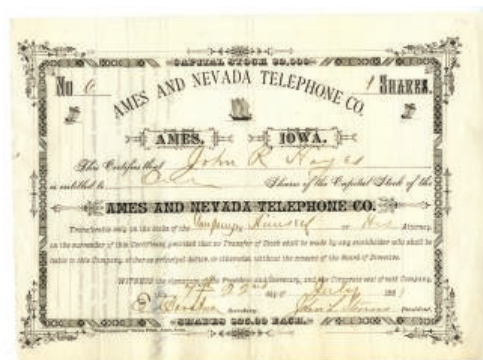 CAPITAL STOCK $3,000
No 6 1 SHARES.
AMES AND NEVADA TELEPHONE CO.
AMES, IOWA.
This Certifies that John R Hayes
is entitled to One Shares of the Capital Stock of the
AMES AND NEVADA TELEPHONE CO.
Transferable only on the books of the Company Himself or His Attorney
on the surrender of this Certificate, provided that no Transfer of Stock shall be made by any stockholder who shall be
liable to this Company, either as principal debtor, or otherwise, without the consent of the Board of Directors.
WITNESS the signatures of the President and Secretary, and the Corporate seal of said Company,
this 22nd day of July 188
Secretary. President.
SHARES $25.00 EACH.